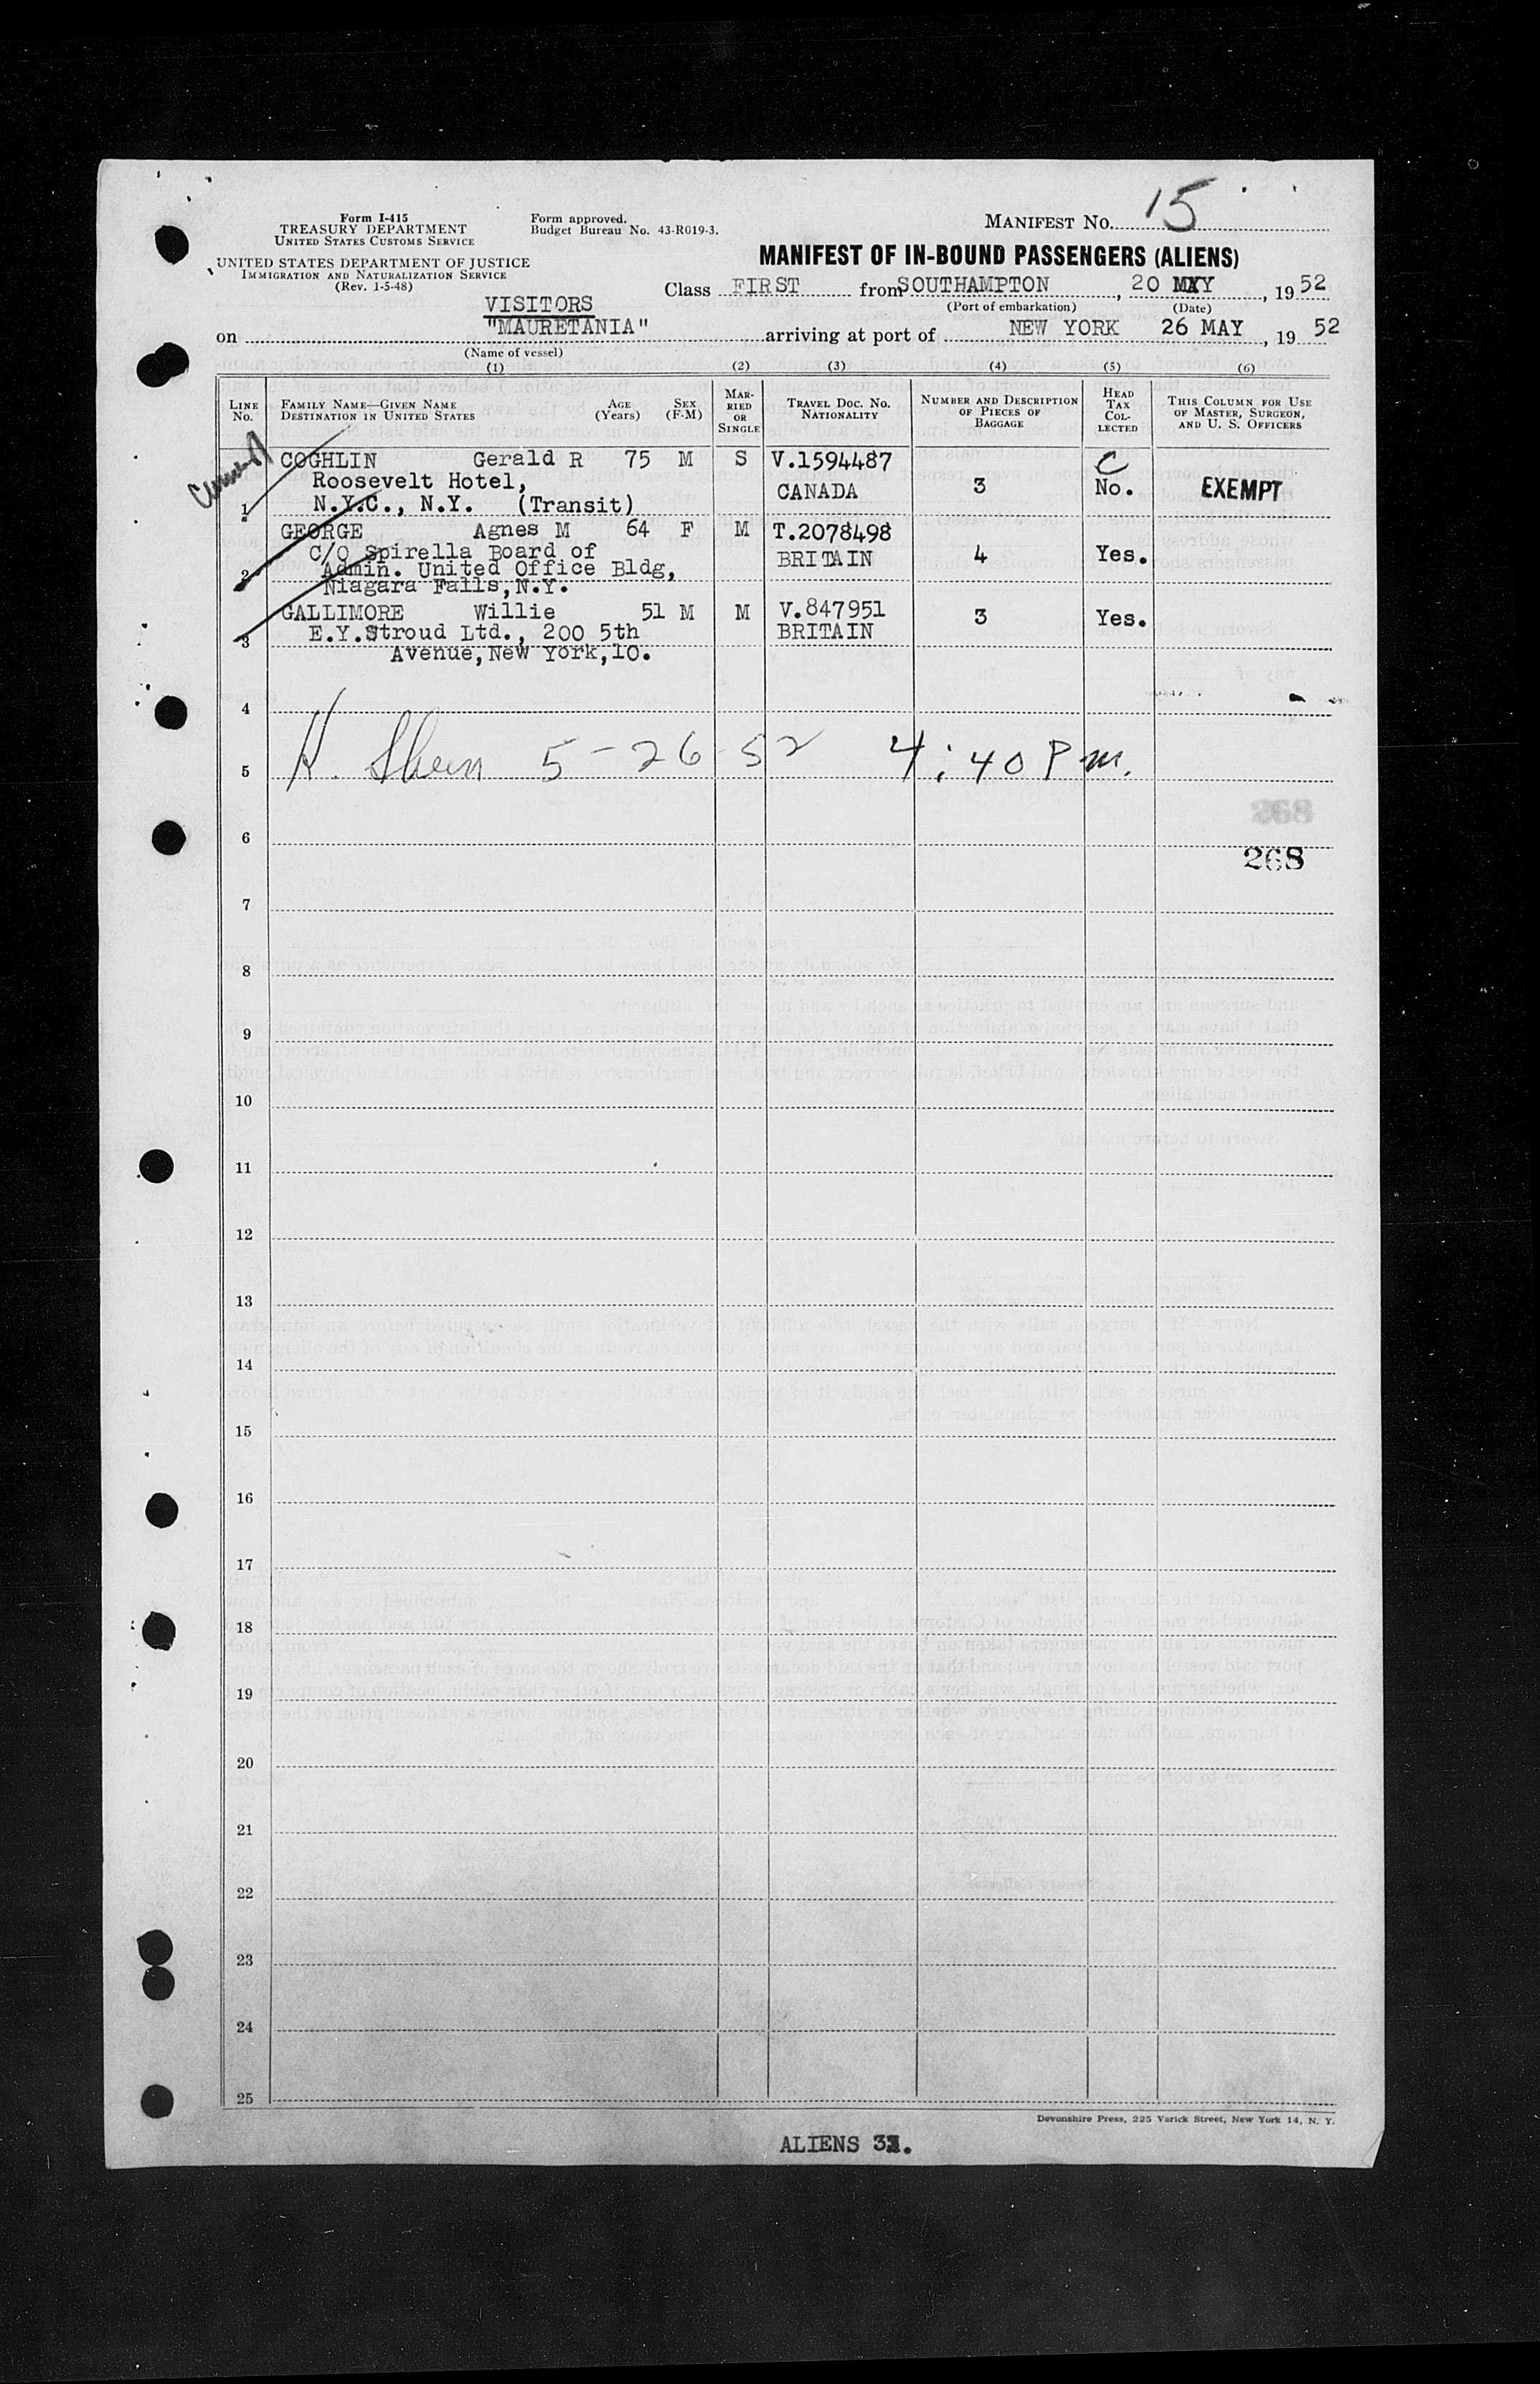 15
MANIFEST No.
Form I-415
TREASURY DEPARTMENT
UNITED STATES CUSTOMS SERVICE
Form approved.
Budget Bureau No. 43-R019-3.
UNITED STATES DEPARTMENT OF JUSTICE
IMMIGRATION AND NATURALIZATION SERVICE
(Rev. 1-5-48)
MANIFEST OF IN-BOUND PASSENGERS (ALIENS)
Class FIRST from SOUTHAMPTON, 20 MAY, 19 52
(Port of embarkation) (Date)
VISITORS
on "MAURETANIA" arriving at port of NEW YORK 26 MAY, 19 52
(Name of vessel)
(1) (2) (3) (4) (5) (6)
LINE No. FAMILY NAME—GIVEN NAME DESTINATION IN UNITED STATES AGE (Years) SEX (F-M) MARRIED OR SINGLE TRAVEL DOC. NO. NATIONALITY NUMBER AND DESCRIPTION OF PIECES OF BAGGAGE HEAD TAX COLLECTED THIS COLUMN FOR USE OF MASTER, SURGEON, AND U. S. OFFICERS
COGHLIN Gerald R 75 M S V.1594487 C
Roosevelt Hotel, CANADA 3 No. EXEMPT
1 N.Y.C., N.Y. (Transit)
GEORGE Agnes M 64 F M T.2078498
C/O Spirella Board of BRITAIN 4 Yes.
2 Admin. United Office Bldg,
Niagara Falls, N.Y.
GALLIMORE Willie 51 M M V.847951 3 Yes.
3 E.Y.Stroud Ltd., 200 5th BRITAIN
Avenue, New York, 10.
4
5 H. 5-26-52 4:40 P m.
268
6
268
7
8
9
10
11
12
13
14
15
16
17
18
19
20
21
22
23
24
25
Devonshire Press, 225 Varick Street, New York 14, N. Y.
ALIENS 3.